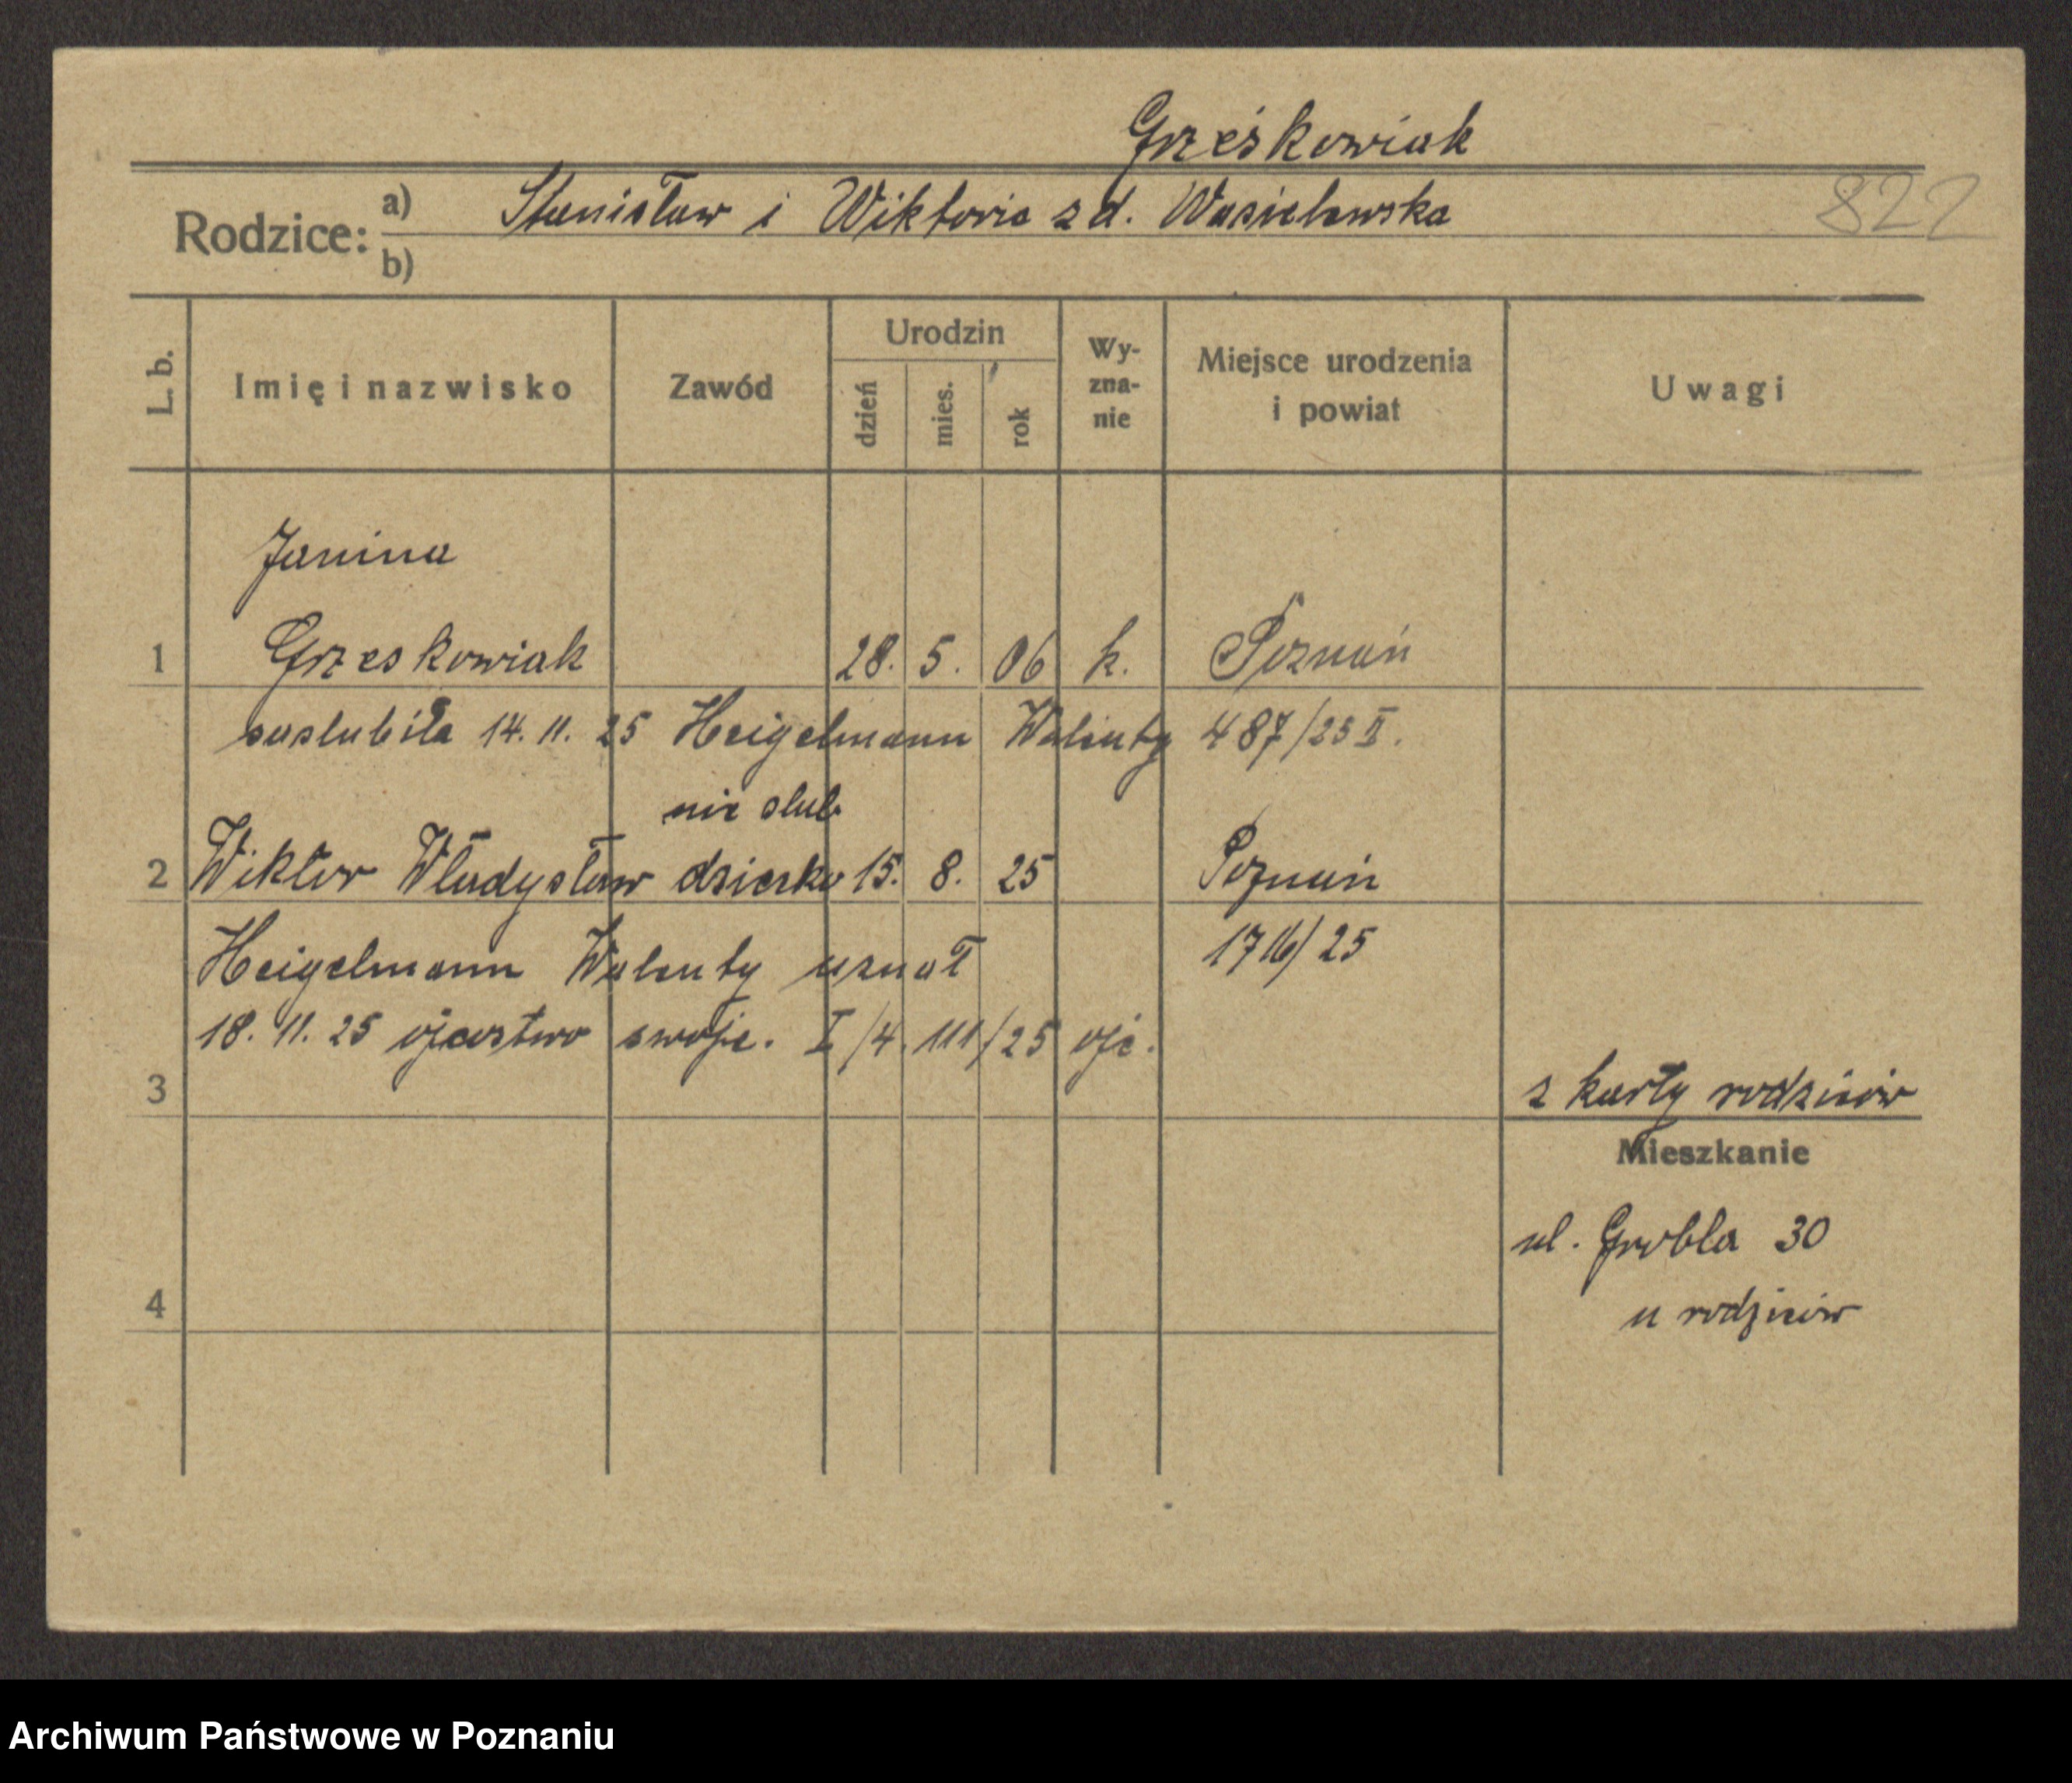 Grześkowiak
Rodzice: a) Stanisław i Wiktoria z d. Wasielewska 822
b)
L. b. Imię i nazwisko Zawód Urodzin dzień mies. rok Wy-zna-nie Miejsce urodzenia i powiat Uwagi
Janina
1 Grzeskowiak 28. 5. 06 k. Poznań
zaslubiła 14. 11. 25 Heigelmann Walenty 487/25 II.
nie slub.
2 Wiktor Władysław dziecko 15. 8. 25 Poznań
Heigelmann Walenty uznał 1716/25
18. 11. 25 ojcostwo swoje. I/4. 111/25 ojc.
3 z karty rodziców
Mieszkanie
ul. Grobla 30
4 u rodziców
Archiwum Państwowe w Poznaniu